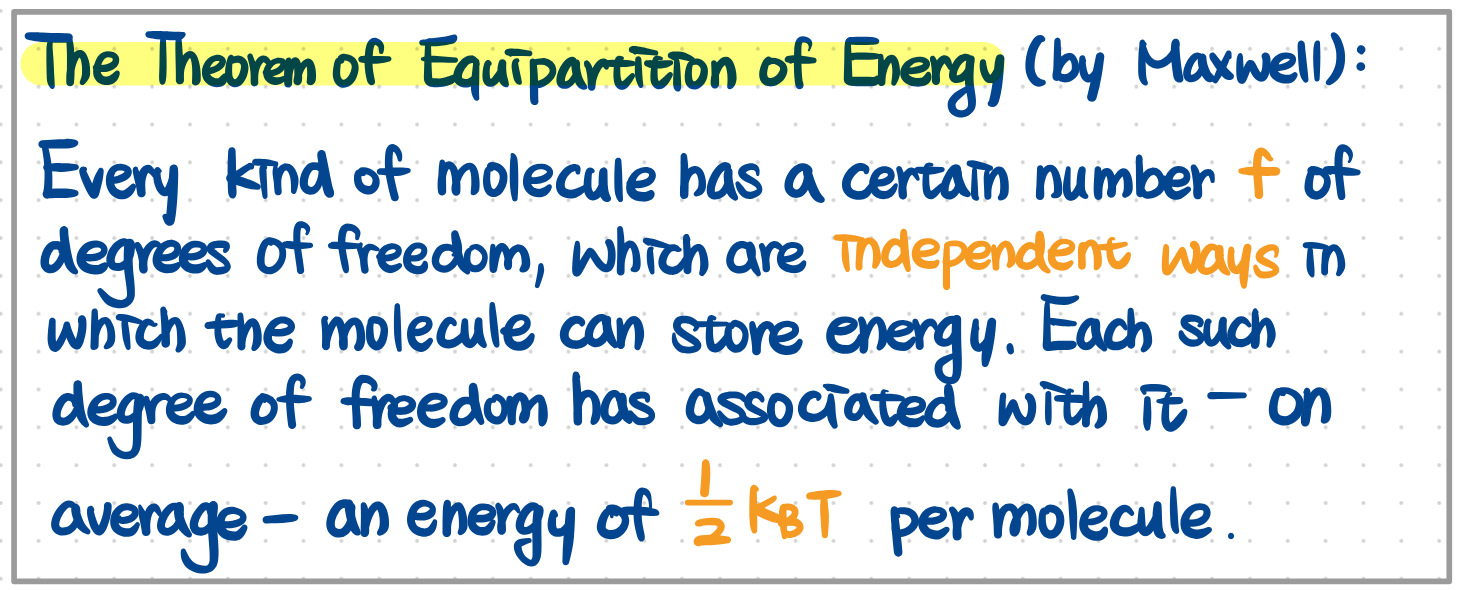 The Theorem of Equipartition of Energy (by Maxwell):
Every kind of molecule has a certain number f of
degrees of freedom, which are independent ways in
which the molecule can store energy. Each such
degree of freedom has associated with it – on
average – an energy of ½ k_B T per molecule.